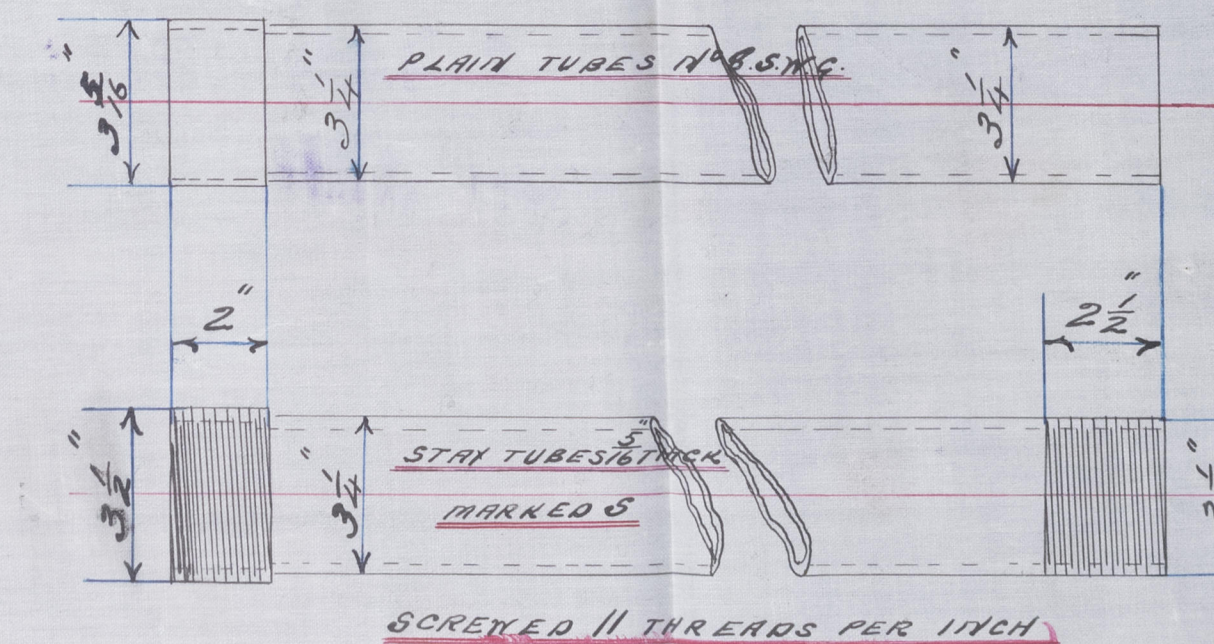 3 5/16" 3 1/4" PLAIN TUBES No 8. S.W.G. 3 1/4"
2" 2 1/2"
3 1/2" 3 1/4" STAY TUBES 5/16" THICK
MARKED S
SCREWED 11 THREADS PER INCH